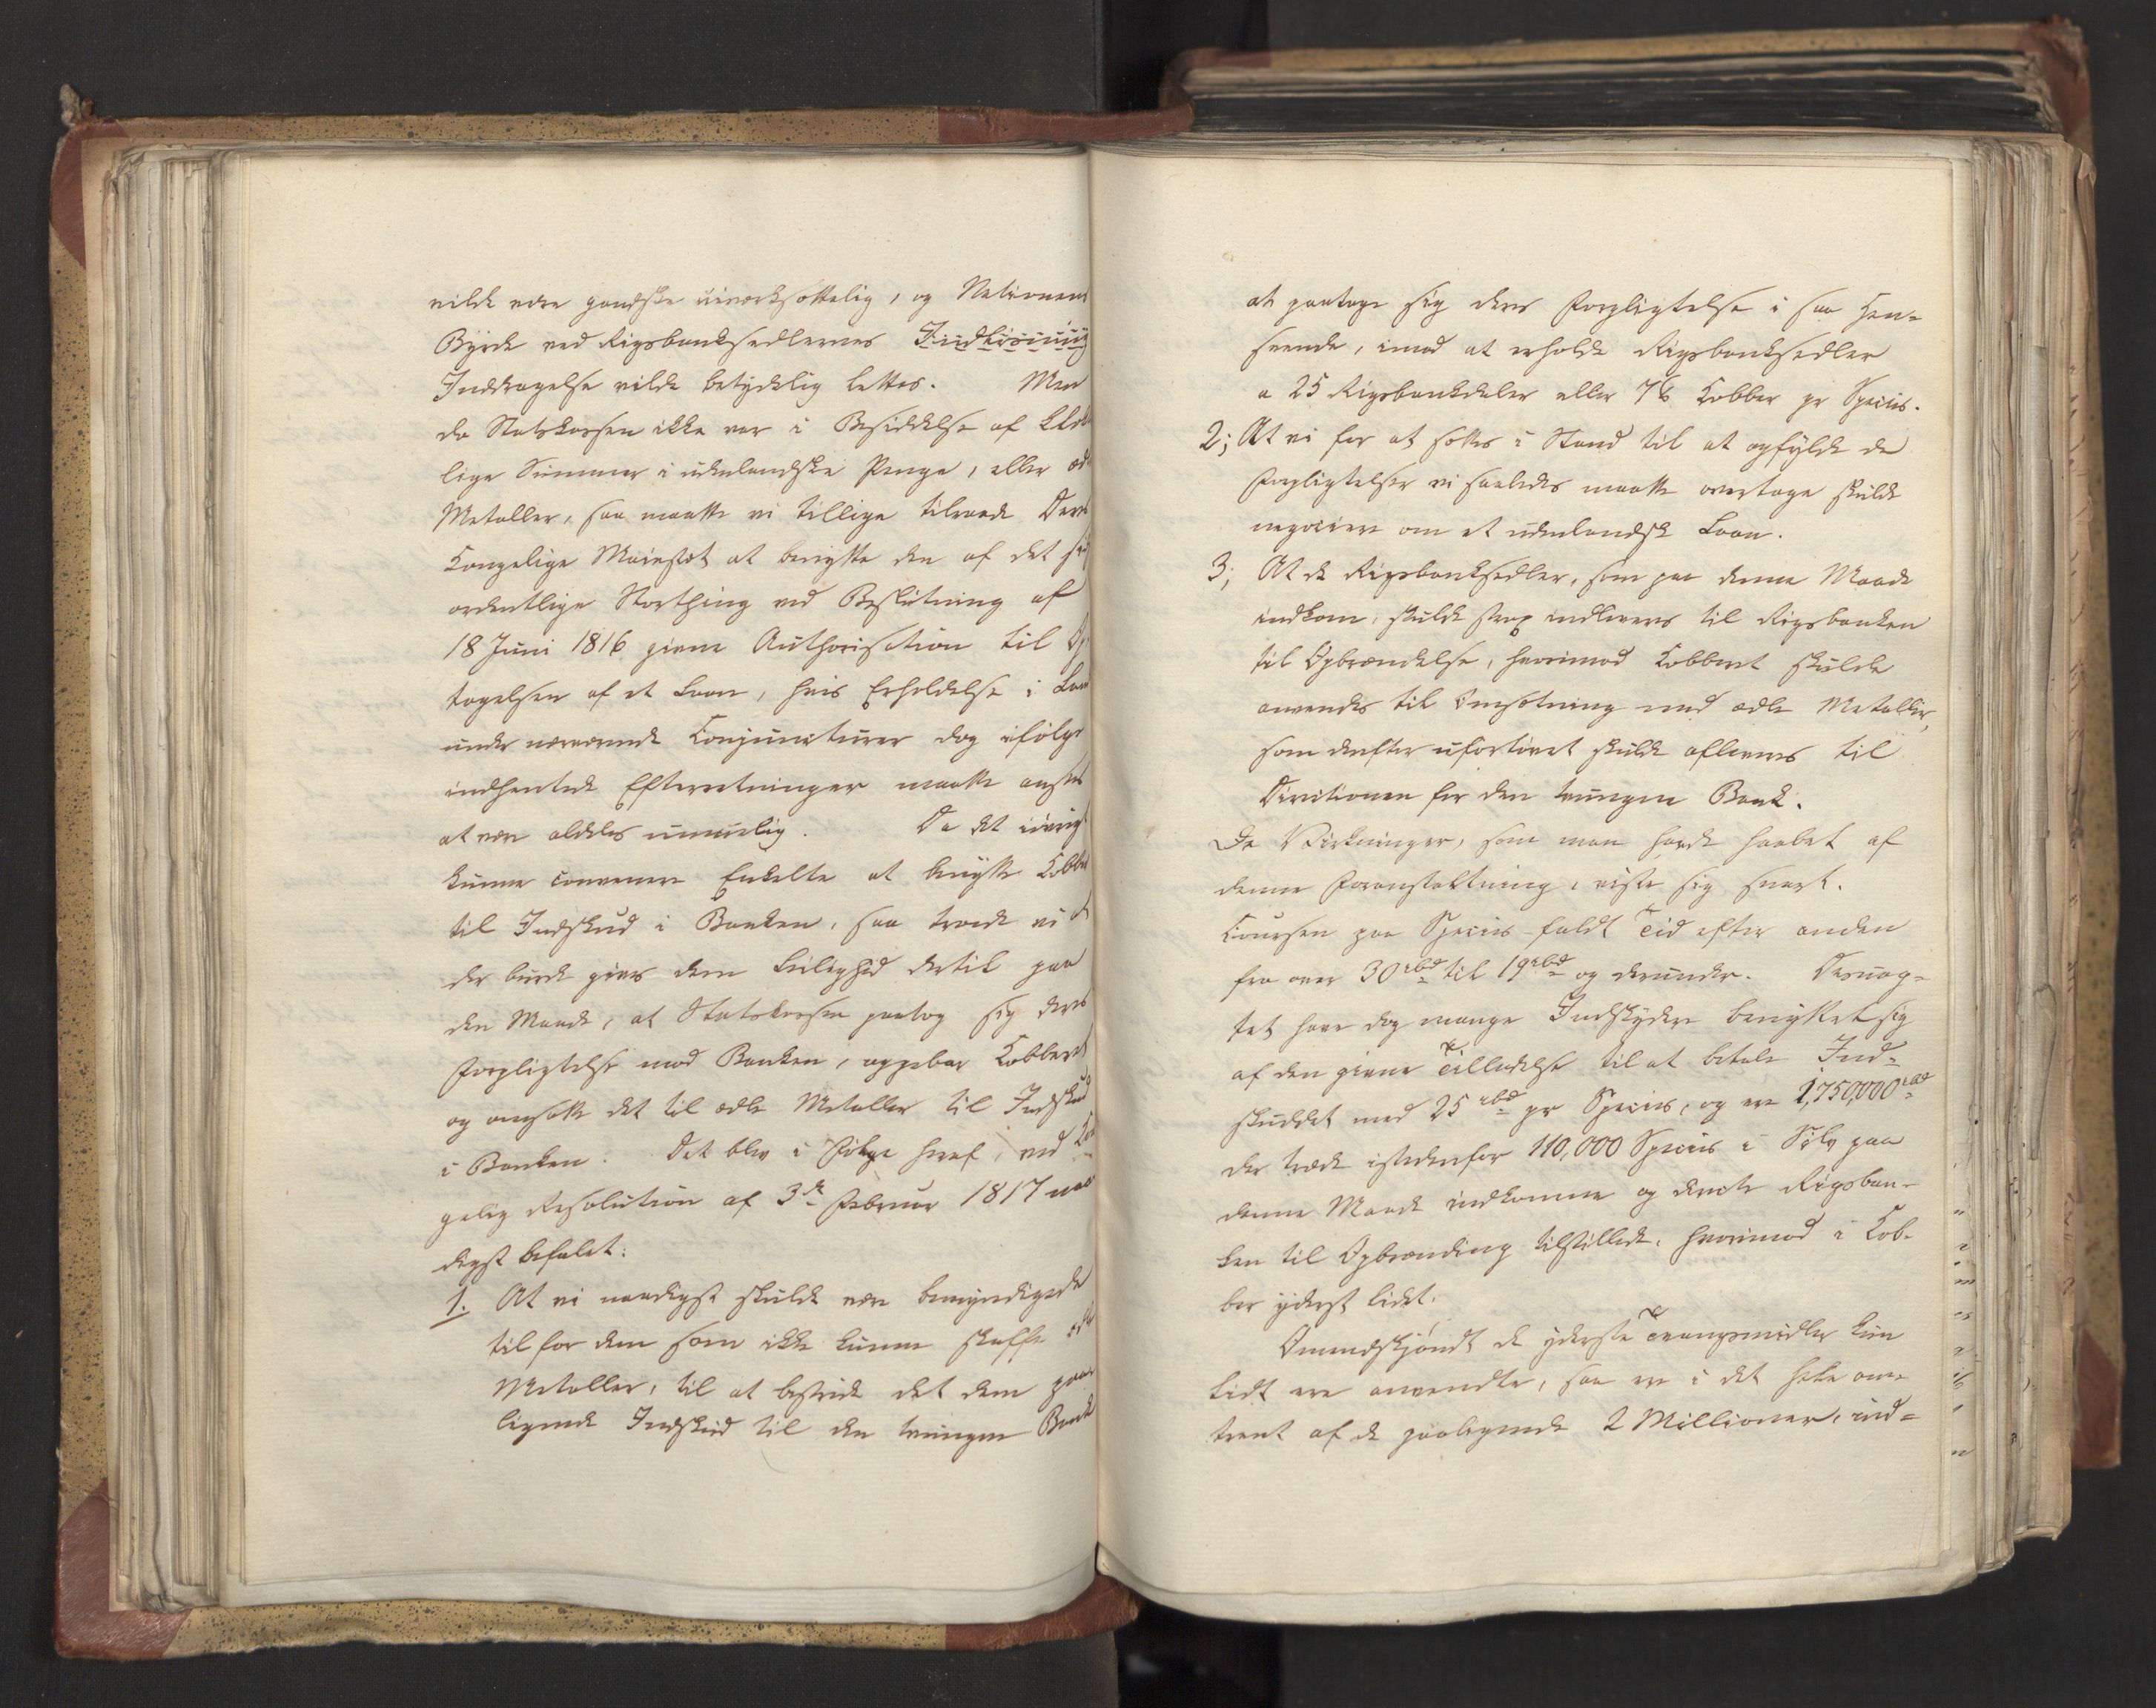 vilde være gandske uiværksættelig, og Nationens
Byrde ved Rigsbanksedlernes Indløsning
Inddragelse vilde betydelig lettes. Men
da Statskassen ikke var i Besiddelse af
lige Summer i udenlandske Penge, eller
Metaller, saa maatte vi tillige tilraade Deres
Kongelige Majestæt at benytte den af det
ordentlige Storthing ved Beslutning af
18 Juni 1816 givne Authorisation til
tagelsen af et Laan, hvis Erholdelse i
under nærværende Conjuncturer dog ifølge
indhentede Efterretninger maatte ansees
at være aldeles umuelig. Da det iøvrigt
kunne convenere Enkelte at benytte Kobber
til Indskud i Banken, saa troede vi at
der burde gives dem Leilighed dertil paa
den Maade, at Statskassen paatog sig deres
Forpligtelse mod Banken, oppebar Kobberet
og omsatte det til ædle Metaller til Indskud
i Banken. Det blev i Følge heraf, ved Kon
gelig Resolution af 3de Februar 1817 naa
digst befalet:
1. At vi naadigst skulde være bemyndigede
til for dem som ikke kunne skaffe ædle
Metaller, til at bestride det dem paa
lignende Indskud til den tvungne Bank
at paatage sig deres Forpligtelse i saa Hen=
seende, imod at erholde Rigsbanksedler
a 25 Rigsbankdaler eller 7 ℔ Kobber pr Species.
2; At vi for at sættes i Stand til at opfylde de
Forpligtelser vi saaledes maatte overtage skulde
negociere om et udenlandsk Laan.
3; At de Rigsbanksedler, som paa denne Maade
indkom, skulde strax indleveres til Rigsbanken
til Opbrændelse, hvorimod Kobberet skulde
anvendes til Omsætning med ædle Metaller,
som derefter ufortøvet skulde afleveres til
Directionen for den tvungne Bank.
De Virkninger, som man havde haabet af
denne Foranstaltning, viste sig snart.
Coursen paa Species faldt Tid efter anden
fra over 30 rbd til 19 rbd og derunder. Desuag=
tet have dog mange Indskydere benyttet sig
af den givne Tilladelse til at betale Ind=
skuddet med 25 rbd pr Species, og ere 1,750,000 rbd
der traadte istedenfor 110,000 Species i Sølv paa
denne Maade indkomne og derete Rigsban=
ken til Opbrænding tilstillede, hvorimod i Kob=
ber yderst lidet.
Omendskjøndt de yderste Tvangsmidler kun
lidt ere anvendte, saa ere i det hele om=
trent af de paalignede 2 Millioner, ind=